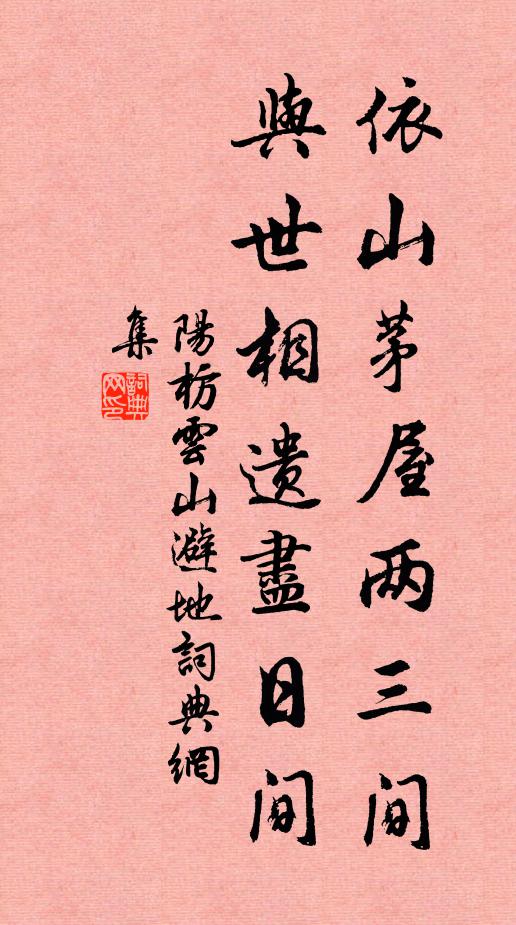 依山茅屋两三间
與世相遺盡日间
陽枋雲山避地詞典網
集
詞典網印